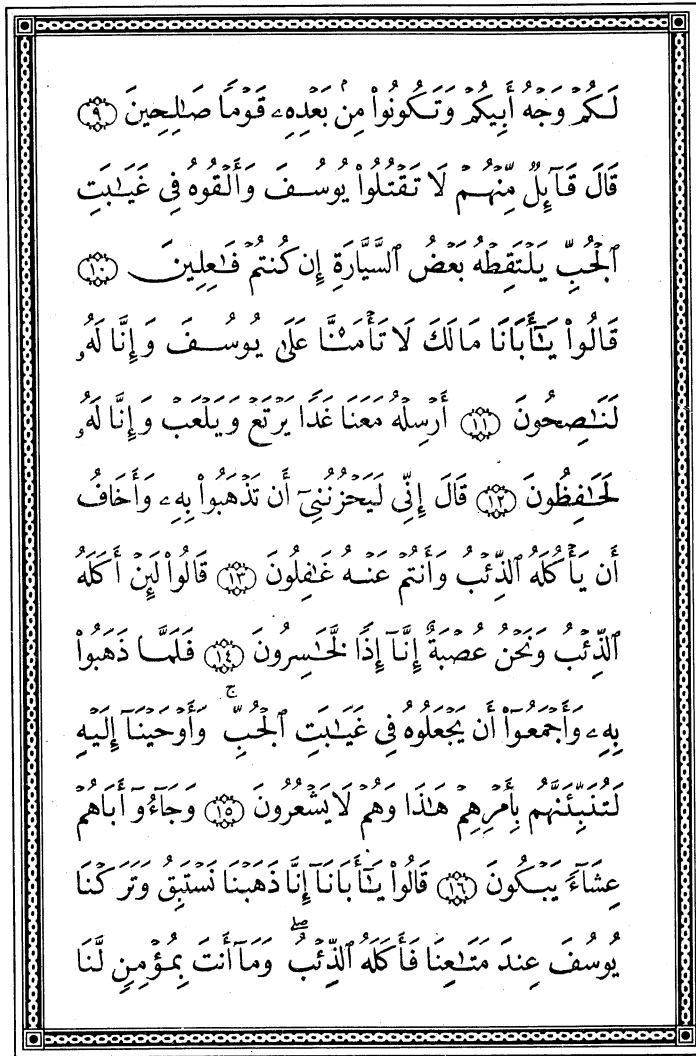 لَكُمْ وَجْهُ أَبِيكُمْ وَتَكُونُوا۟ مِنۢ بَعْدِهِۦ قَوْمًا صَـٰلِحِينَ ٩
قَالَ قَآئِلٌ مِّنْهُمْ لَا تَقْتُلُوا۟ يُوسُفَ وَأَلْقُوهُ فِى غَيَـٰبَتِ
ٱلْجُبِّ يَلْتَقِطْهُ بَعْضُ ٱلسَّيَّارَةِ إِن كُنتُمْ فَـٰعِلِينَ ١٠
قَالُوا۟ يَـٰٓأَبَانَا مَالَكَ لَا تَأْمَ۫نَّا عَلَىٰ يُوسُفَ وَإِنَّا لَهُۥ
لَنَـٰصِحُونَ ١١ أَرْسِلْهُ مَعَنَا غَدًا يَرْتَعْ وَيَلْعَبْ وَإِنَّا لَهُۥ
لَحَـٰفِظُونَ ١٢ قَالَ إِنِّى لَيَحْزُنُنِىٓ أَن تَذْهَبُوا۟ بِهِۦ وَأَخَافُ
أَن يَأْكُلَهُ ٱلذِّئْبُ وَأَنتُمْ عَنْهُ غَـٰفِلُونَ ١٣ قَالُوا۟ لَئِنْ أَكَلَهُ
ٱلذِّئْبُ وَنَحْنُ عُصْبَةٌ إِنَّآ إِذًا لَّخَـٰسِرُونَ ١٤ فَلَمَّا ذَهَبُوا۟
بِهِۦ وَأَجْمَعُوٓا۟ أَن يَجْعَلُوهُ فِى غَيَـٰبَتِ ٱلْجُبِّ ۚ وَأَوْحَيْنَآ إِلَيْهِ
لَتُنَبِّئَنَّهُم بِأَمْرِهِمْ هَـٰذَا وَهُمْ لَا يَشْعُرُونَ ١٥ وَجَآءُوٓ أَبَاهُمْ
عِشَآءً يَبْكُونَ ١٦ قَالُوا۟ يَـٰٓأَبَانَآ إِنَّا ذَهَبْنَا نَسْتَبِقُ وَتَرَكْنَا
يُوسُفَ عِندَ مَتَـٰعِنَا فَأَكَلَهُ ٱلذِّئْبُ ۖ وَمَآ أَنتَ بِمُؤْمِنٍ لَّنَا